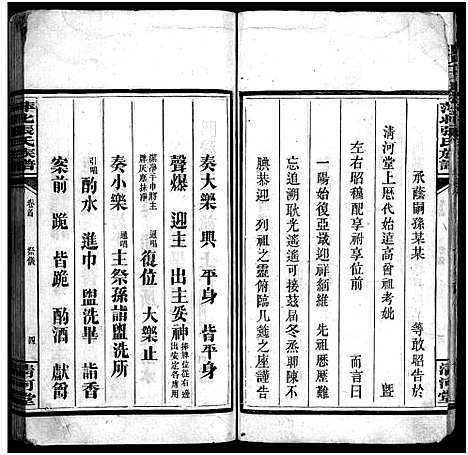 承蔭嗣孫某某　等敢昭告於
清河堂上歷代始遠高曾祖考妣　暨
左右昭穆配享祔享位前　而言曰
一陽始復亞歲迎祥緬維　先祖歷歷難
忘追溯　耿光遙遙可接茲屆冬節聊陳不
腆恭迎　列祖之靈俯臨几筵之座謹告
奏大樂　興　平身　皆平身
聲爆　迎主　出主妥神
捧神位從右邊
出安定各席用
潔淨手巾將主
牌灰塵抹淨
通唱
復位　大樂止
奏小樂
通唱
主祭孫詣盥洗所
引唱
酌水　進巾　盥洗畢　詣香
案前　跪　皆跪　酌酒　獻爵
萍北張氏族譜
卷首　祭儀
四
清河堂
萍北張氏族譜
清河堂